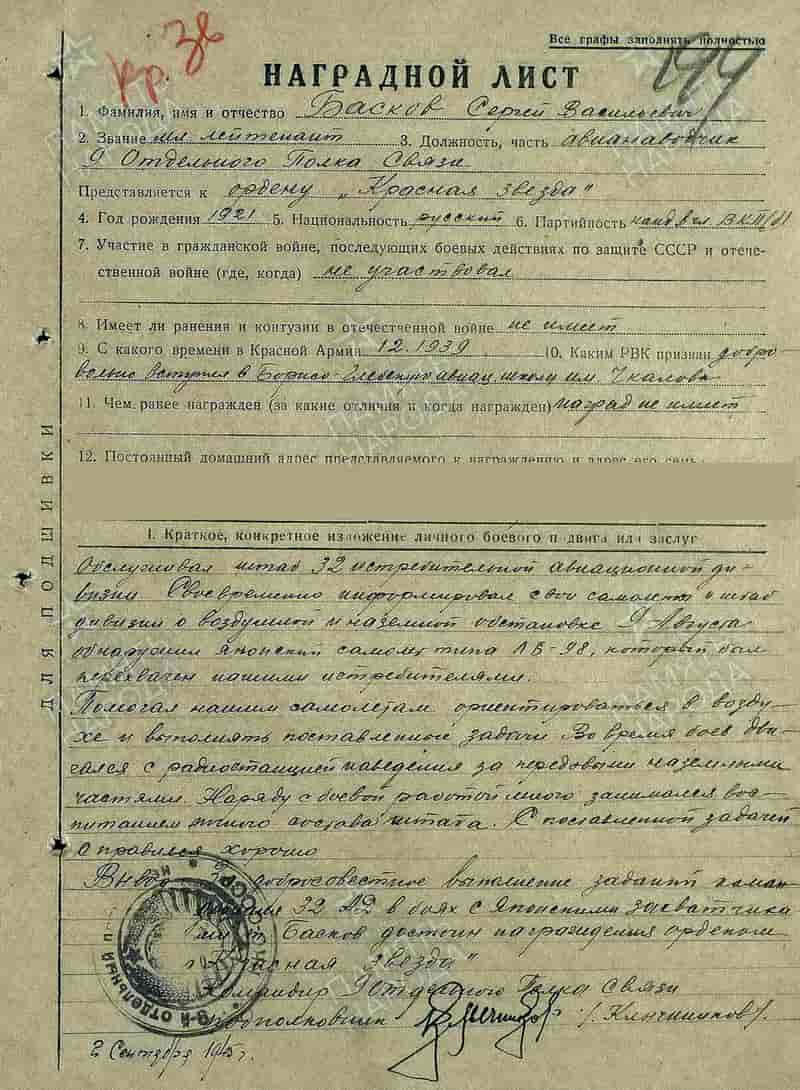 Все графы заполнять полностью
кр. Зв
199
НАГРАДНОЙ ЛИСТ
1. Фамилия, имя и отчество Басков Сергей Васильевич
2. Звание мл лейтенант 3. Должность, часть авианаводчик
9 Отдельного Полка Связи
Представляется к ордену „Красная звезда"
4. Год рождения 1921 5. Национальность русский 6. Партийность канд. в чл. ВКП(б)
7. Участие в гражданской войне, последующих боевых действиях по защите СССР и отече-
ственной войне (где, когда) не участвовал
8. Имеет ли ранения и контузии в отечественной войне не имеет
9. С какого времени в Красной Армии 12.1939 10. Каким РВК призван добро-
вольно вступил в Борисо-Глебскую авиац. школу им. Чкалова
11. Чем ранее награжден (за какие отличия и когда награжден) наград не имеет
12. Постоянный домашний адрес представляемого к награждению и адрес его семь
I. Краткое, конкретное изложение личного боевого подвига или заслуг
Обслуживал штаб 32 истребительной авиационной ди-
визии. Своевременно информировал свои самолеты и штаб
дивизии о воздушной и наземной обстановке 9 Августа
обнаружил японский самолет типа ЛБ-98, который был
перехвачен нашими истребителями.
Помогал нашим самолетам ориентироваться в возду-
хе и выполнять поставленной задачи Во время боев дви-
гался с радиостанцией наведения за передовыми наземными
частями. Наряду с боевой работой много занимался вос-
питанием личного состава штата. С поставленной задачей
справился хорошо
Вывод За добросовестное выполнение заданий коман-
32 АД в боях с Японскими захватчика
ми Басков достоин награждения орденом
„Красная звезда"
Командир 9 Отдельного Полка Связи
подполковник /Ключников/
2 Сентября 1945 г.
9-й отдельный
ДЛЯ ПОДШИВКИ